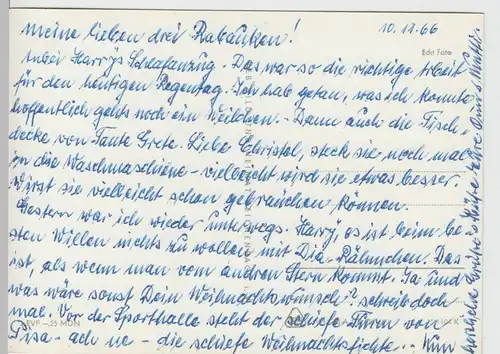 10.12.66
Meine lieben drei Rabauken!
Echt Foto
Anbei Harrys Schlafanzug. Das war so die richtige Arbeit
für den heutigen Regentag. Ich hab getan, was ich konnte
hoffentlich gehts noch ein Weilchen. - Dann auch die Tisch-
decke von Tante Grete. Liebe Christel, steck sie noch mal
in die Waschmaschiene - vielleicht wird sie etwas besser.
Wirst sie vielleicht schon gebrauchen können.
Gestern war ich wieder unterwegs. Harry, es ist beim be-
sten Willen nichts zu wollen mit Dia-Rähmchen. Das
ist, als wenn man vom andren Stern kommt. Ja und
was wäre sonst Dein Weihnachtswunsch? schreib doch
mal. Vor der Sporthalle steht der schiefe Turm von
EVP -,25 MDN
Pisa - ach ne - die schiefe Weihnachtsfichte. - Nun
herzliche Grüße u. Küsse Eure Omi u. Mutti.